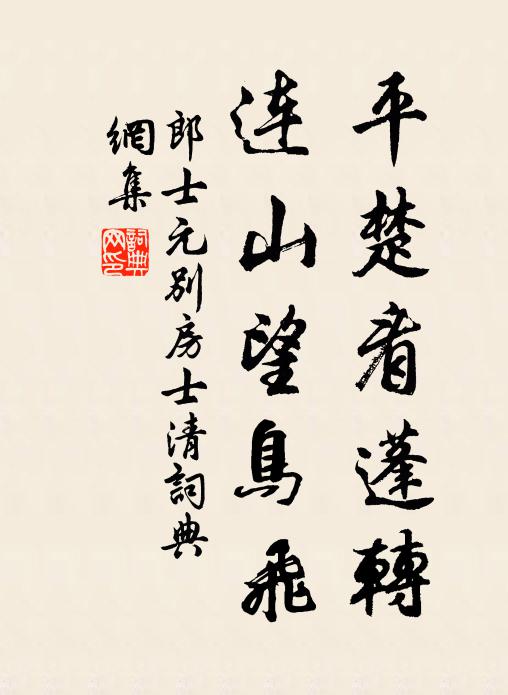 平楚看蓬轉
連山望鳥飛
郎士元別房士清詞典
網集
詞典網印